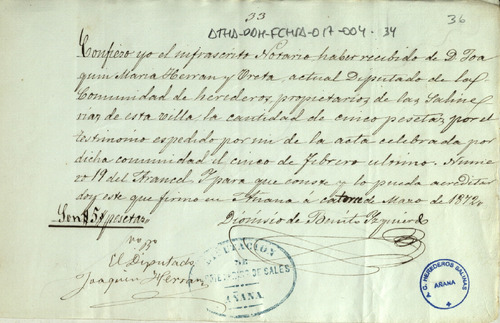 33
36
ATHA-DAH-FCHSA-017-004-34
Confieso yo el infrascrito Notario haber recibido de D. Joa
quin Maria Herran y Ureta, actual Diputado de la
Comunidad de herederos propietarios de las Saline
rias de esta villa la cantidad de cinco pesetas por el
testimonio espedido por mi de la acta celebrada por
dicha comunidad el cinco de febrero ultimo. Nume
ro 19 del Arancel. Y para que conste y lo pueda acreditar
doy este que firmo en Añana a catorce de Marzo de 1872
Son 5 pesetas
Dionisio de Benito Izquierdo
Vo Bo
El Diputado
Joaquin Herran
DE SALES
AÑANA
A.C. HEREDEROS SALINAS
AÑANA